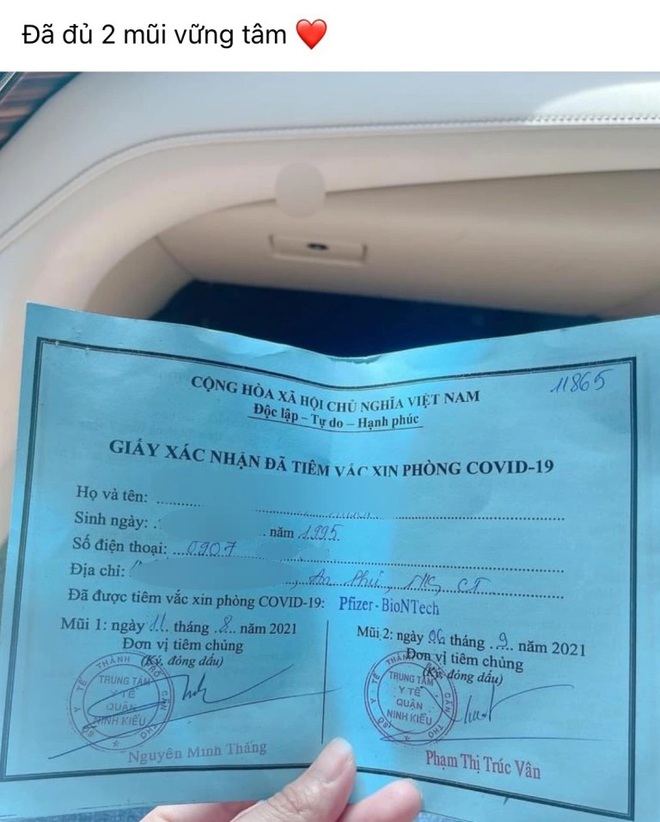 Đã đủ 2 mũi vững tâm ❤️
11865
CỘNG HÒA XÃ HỘI CHỦ NGHĨA VIỆT NAM
Độc lập – Tự do – Hạnh phúc
GIẤY XÁC NHẬN ĐÃ TIÊM VẮC XIN PHÒNG COVID-19
Họ và tên:
Sinh ngày: năm 1995
Số điện thoại: 0907
Địa chỉ: , An Phú, NK, CT
Đã được tiêm vắc xin phòng COVID-19: Pfizer - BioNTech
Mũi 1: ngày 11 tháng 8 năm 2021
Đơn vị tiêm chủng
(Ký, đóng dấu)
SỞ Y TẾ THÀNH PHỐ CẦN THƠ
TRUNG TÂM
Y TẾ
QUẬN
NINH KIỀU
Nguyễn Minh Thắng
Mũi 2: ngày 06 tháng 9 năm 2021
Đơn vị tiêm chủng
(Ký, đóng dấu)
SỞ Y TẾ THÀNH PHỐ CẦN THƠ
TRUNG TÂM
Y TẾ
QUẬN
NINH KIỀU
Phạm Thị Trúc Vân